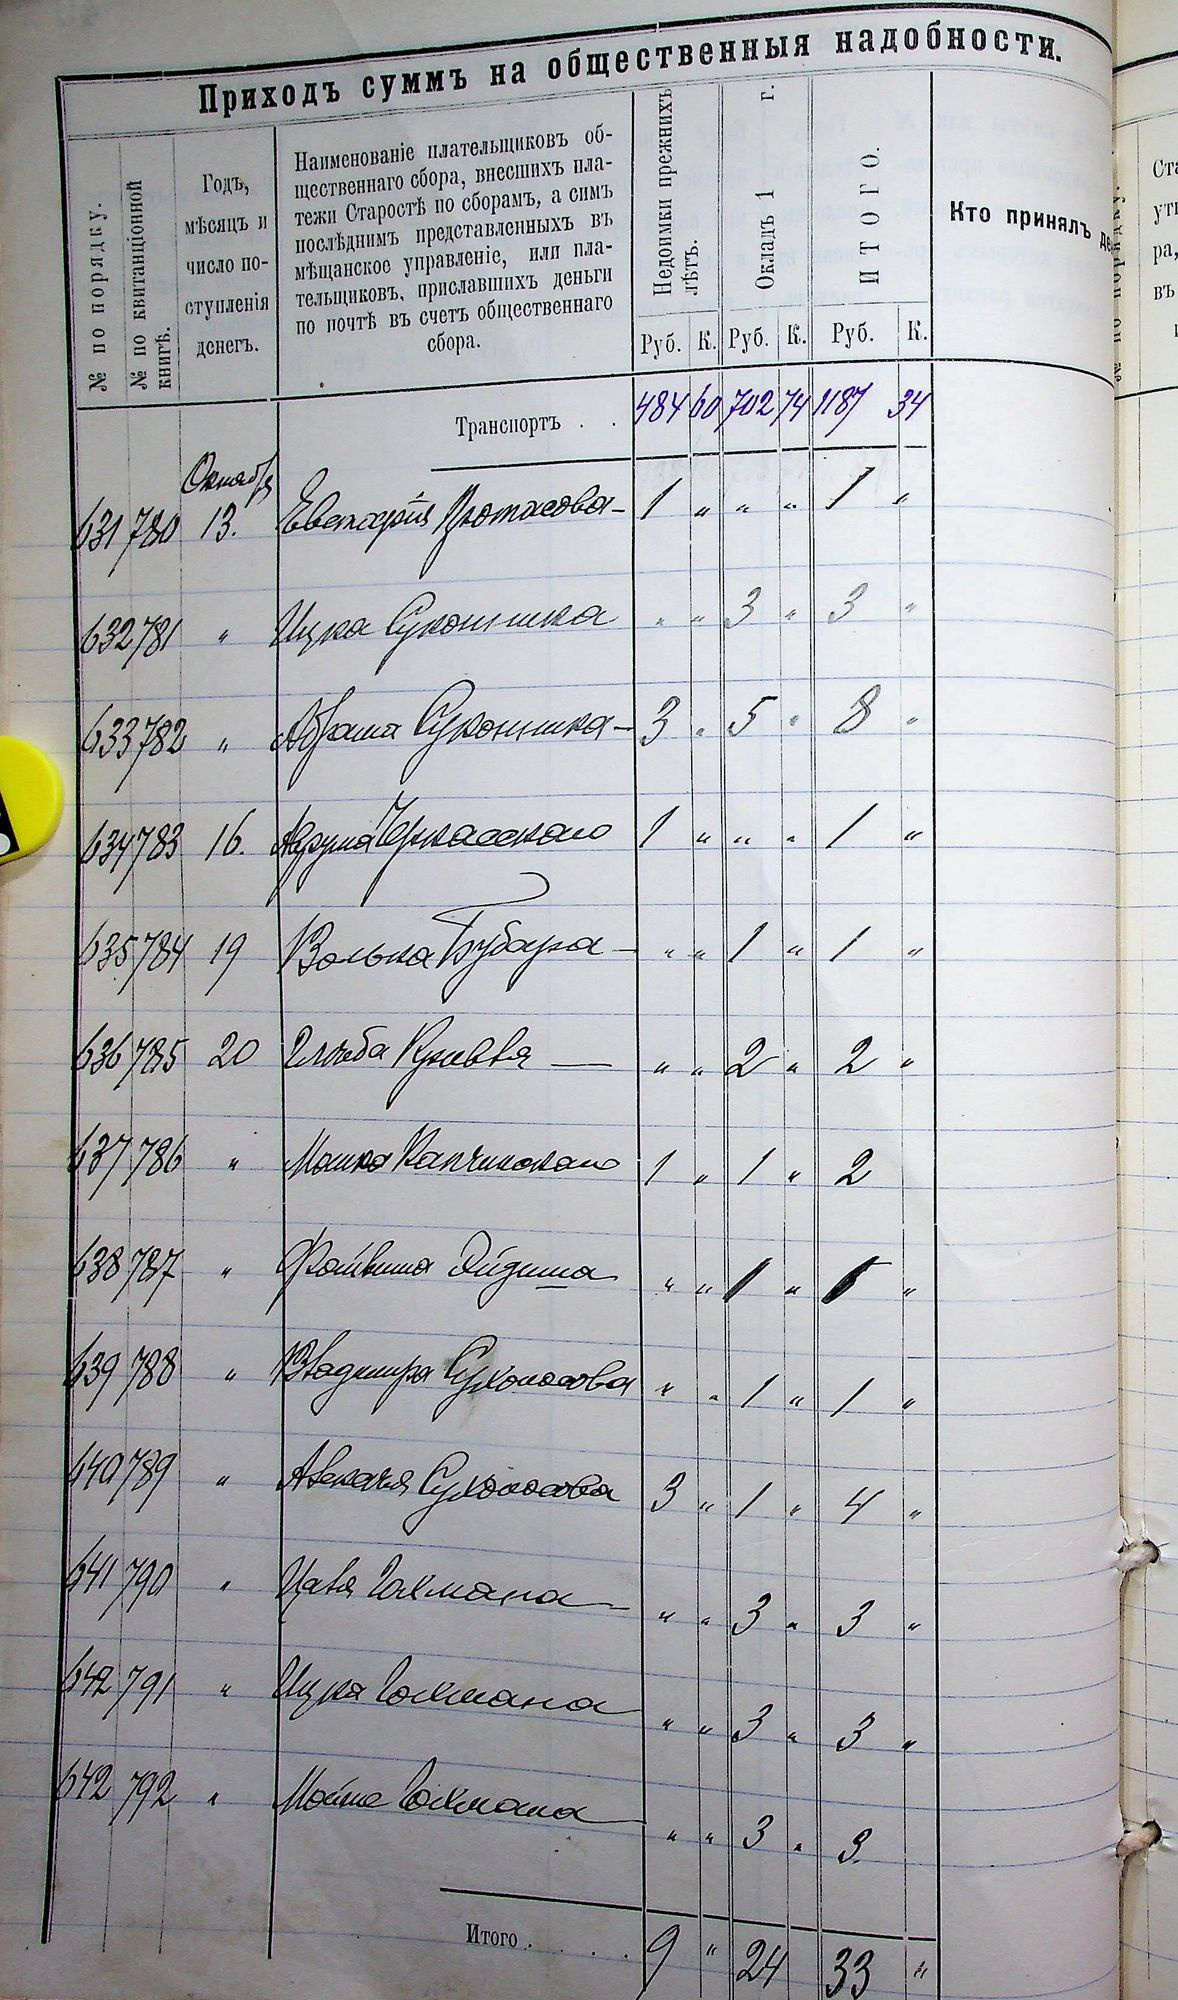 Приходъ суммъ на общественныя надобности.
№ по порядку.
№ по квитанціонной
книгѣ.
Годъ,
мѣсяцъ и
число по-
ступленія
денегъ.
Наименованіе плательщиковъ об-
щественнаго сбора, внесшихъ пла-
тежи Старостѣ по сборамъ, а симъ
послѣднимъ представленныхъ въ
мѣщанское управленіе, или пла-
тельщиковъ, приславшихъ деньги
по почтѣ въ счетъ общественнаго
сбора.
Недоимки прежнихъ
лѣтъ.
Окладъ 1 г.
ИТОГО.
Кто принялъ де
Руб. К. Руб. К. Руб. К.
Транспортъ . . 484 60 702 74 1187 34
Октября
631 780 13. Протасова – 1 „ „ „ 1 „
632 781 „ Ицка „ „ 3 „ 3 „
633 782 „ Абрама – 3 „ 5 „ 8 „
634 783 16. Черкасскаго 1 „ „ „ 1 „
635 784 19 Волька – „ „ 1 „ 1 „
636 785 20 — „ „ 2 „ 2 „
637 786 „ Мошка 1 „ 1 „ 2
638 787 „ „ „ 1 „ 1 „
639 788 „ Владимира Сухоносова „ „ 1 „ 1 „
640 789 „ Сухоносова 3 „ 1 „ 4 „
641 790 „ Гохмана – „ „ 3 „ 3 „
642 791 „ Ицка Гохмана „ „ 3 „ 3 „
642 792 „ Гохмана „ „ 3 „ 3
Итого . . . . 9 „ 24 33 „